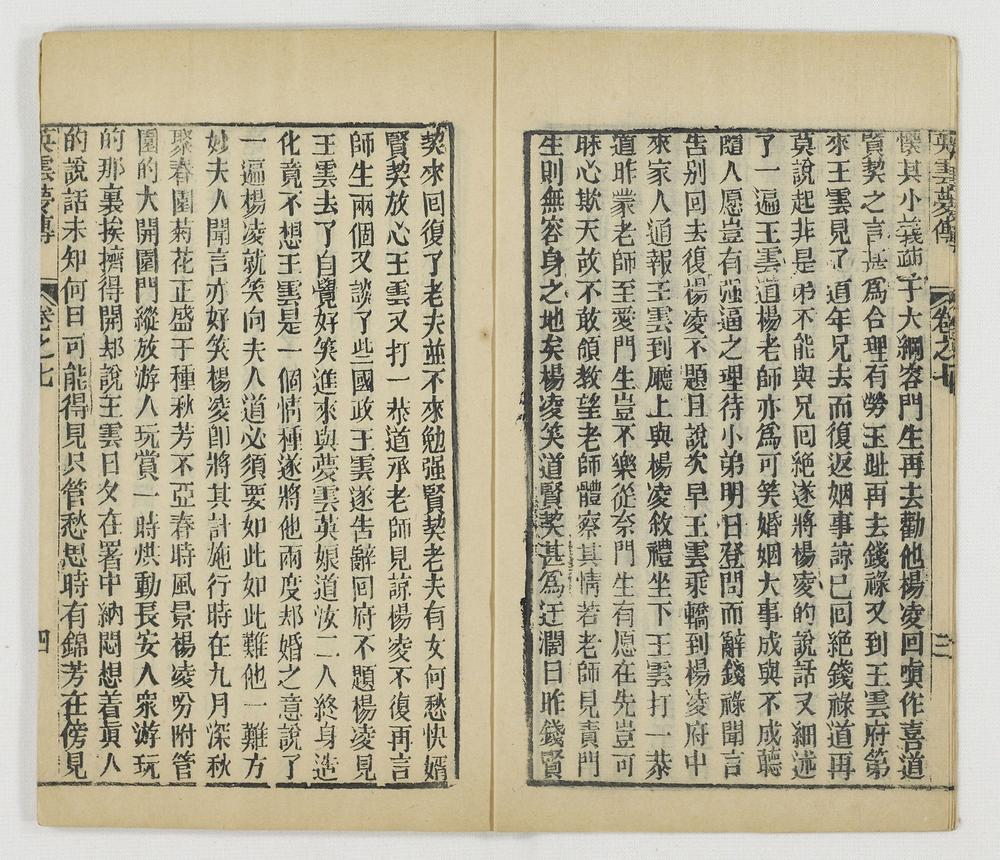 英雲夢傳 卷之七 三
懷其小義疏于大綱容門生再去勸他楊凌回嗔作喜道
賢契之言甚爲合理有勞玉趾再去錢祿又到王雲府第
來王雲見了道年兄去而復返姻事諒已回絕錢祿道再
莫說起非是弟不能與兄回絕遂將楊凌的說話又細述
了一遍王雲道楊老師亦爲可笑婚姻大事成與不成聽
隨人愿豈有强逼之理待小弟明日登門而辭錢祿聞言
告別回去復楊凌不題且說次早王雲乘轎到楊凌府中
來家人通報王雲到廳上與楊凌敘禮坐下王雲打一恭
道昨蒙老師至愛門生豈不樂從奈門生有愿在先豈可
昧心欺天故不敢領教望老師體察其情若老師見責門
生則無容身之地矣楊凌笑道賢契甚爲迂濶日昨錢賢
契來回復了老夫並不來勉强賢契老夫有女何愁快婿
賢契放心王雲又打一恭道承老師見諒楊凌不復再言
師生兩個又談了些國政王雲遂告辭回府不題楊凌見
王雲去了自覺好笑進來與夢雲英娘道汝二人終身造
化竟不想王雲是一個情種遂將他兩度却婚之意說了
一遍楊凌就笑向夫人道必須要如此如此難他一難方
妙夫人聞言亦好笑楊凌卽將其計施行時在九月深秋
聚春園菊花正盛于種秋芳不亞春時風景楊凌吩咐管
園的大開園門縱放游人玩賞一時烘動長安人衆游玩
的那裏挨擠得開却說王雲日夕在署中納悶想着眞人
的說話未知何日可能得見只管愁思時有錦芳在傍見
英雲夢傳 卷之七 四